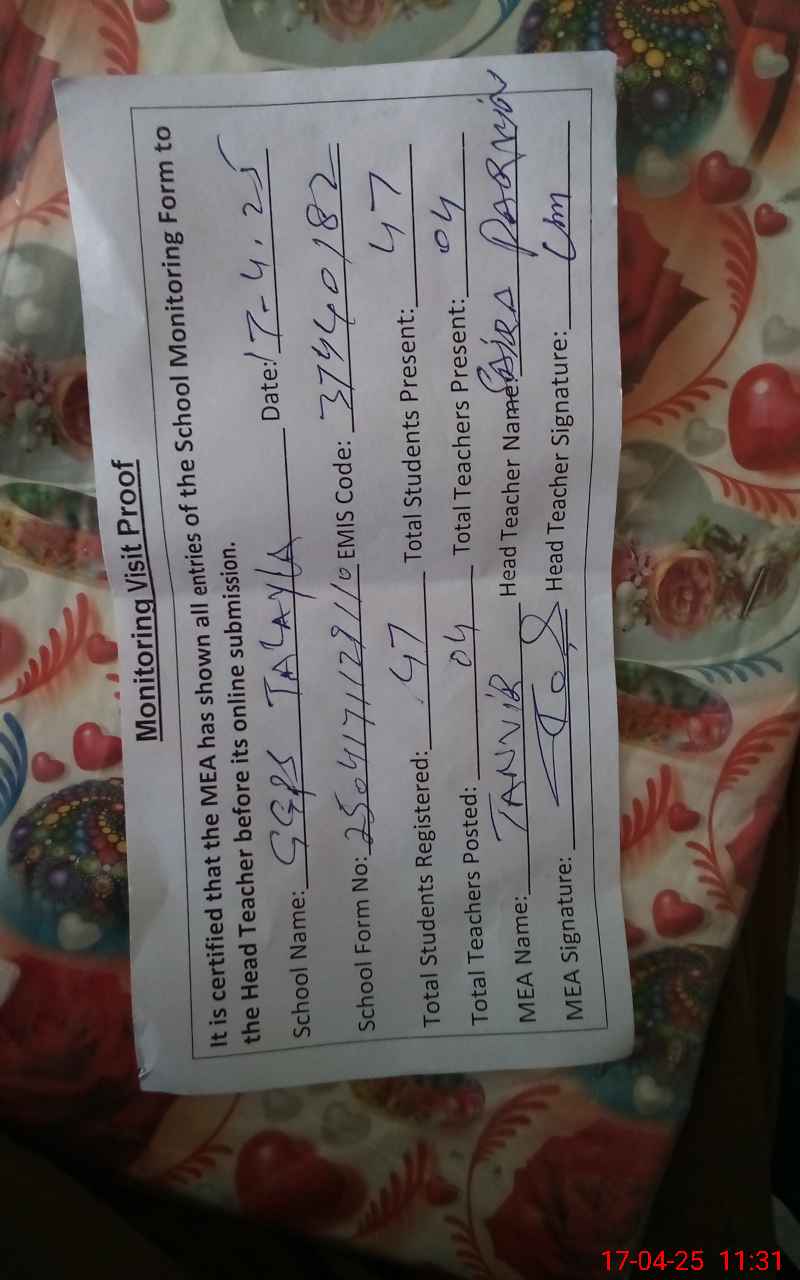 Monitoring Visit Proof
It is certified that the MEA has shown all entries of the School Monitoring Form to
the Head Teacher before its online submission.
School Name: GGPS TALAYLA Date: 17-4.25
School Form No: EMIS Code: 37440182
Total Students Registered: 47 Total Students Present: 47
Total Teachers Posted: 04 Total Teachers Present: 04
MEA Name: TANVIR Head Teacher Name: SAIRA PARVIN
MEA Signature: Head Teacher Signature:
17-04-25 11:31